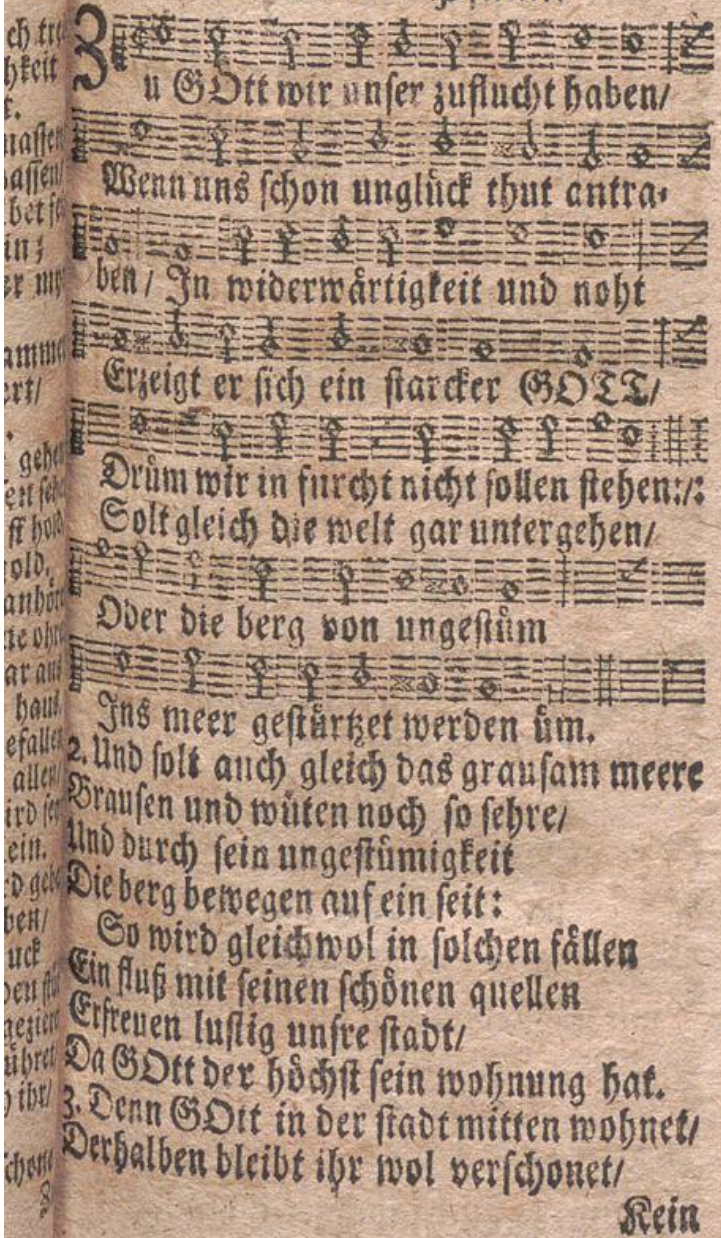 Zu GOtt wir unser zuflucht haben/
Wenn uns schon unglück thut antra⸗
ben/ In widerwärtigkeit und noht
Erzeigt er sich ein starcker GOTT/
Drüm wir in furcht nicht sollen stehen:/:
Solt gleich die welt gar untergehen/
Oder die berg von ungestüm
Ins meer gestürtzet werden üm.
2. Und solt auch gleich das grausam meere
Brausen und wüten noch so sehre/
Und durch sein ungestümigkeit
Die berg bewegen auf ein seit:
So wird gleichwol in solchen fällen
Ein fluß mit seinen schönen quellen
Erfreuen lustig unsre stadt/
Da GOtt der höchst sein wohnung hat.
3. Denn GOtt in der stadt mitten wohnet/
Derhalben bleibt ihr wol verschonet/
Kein